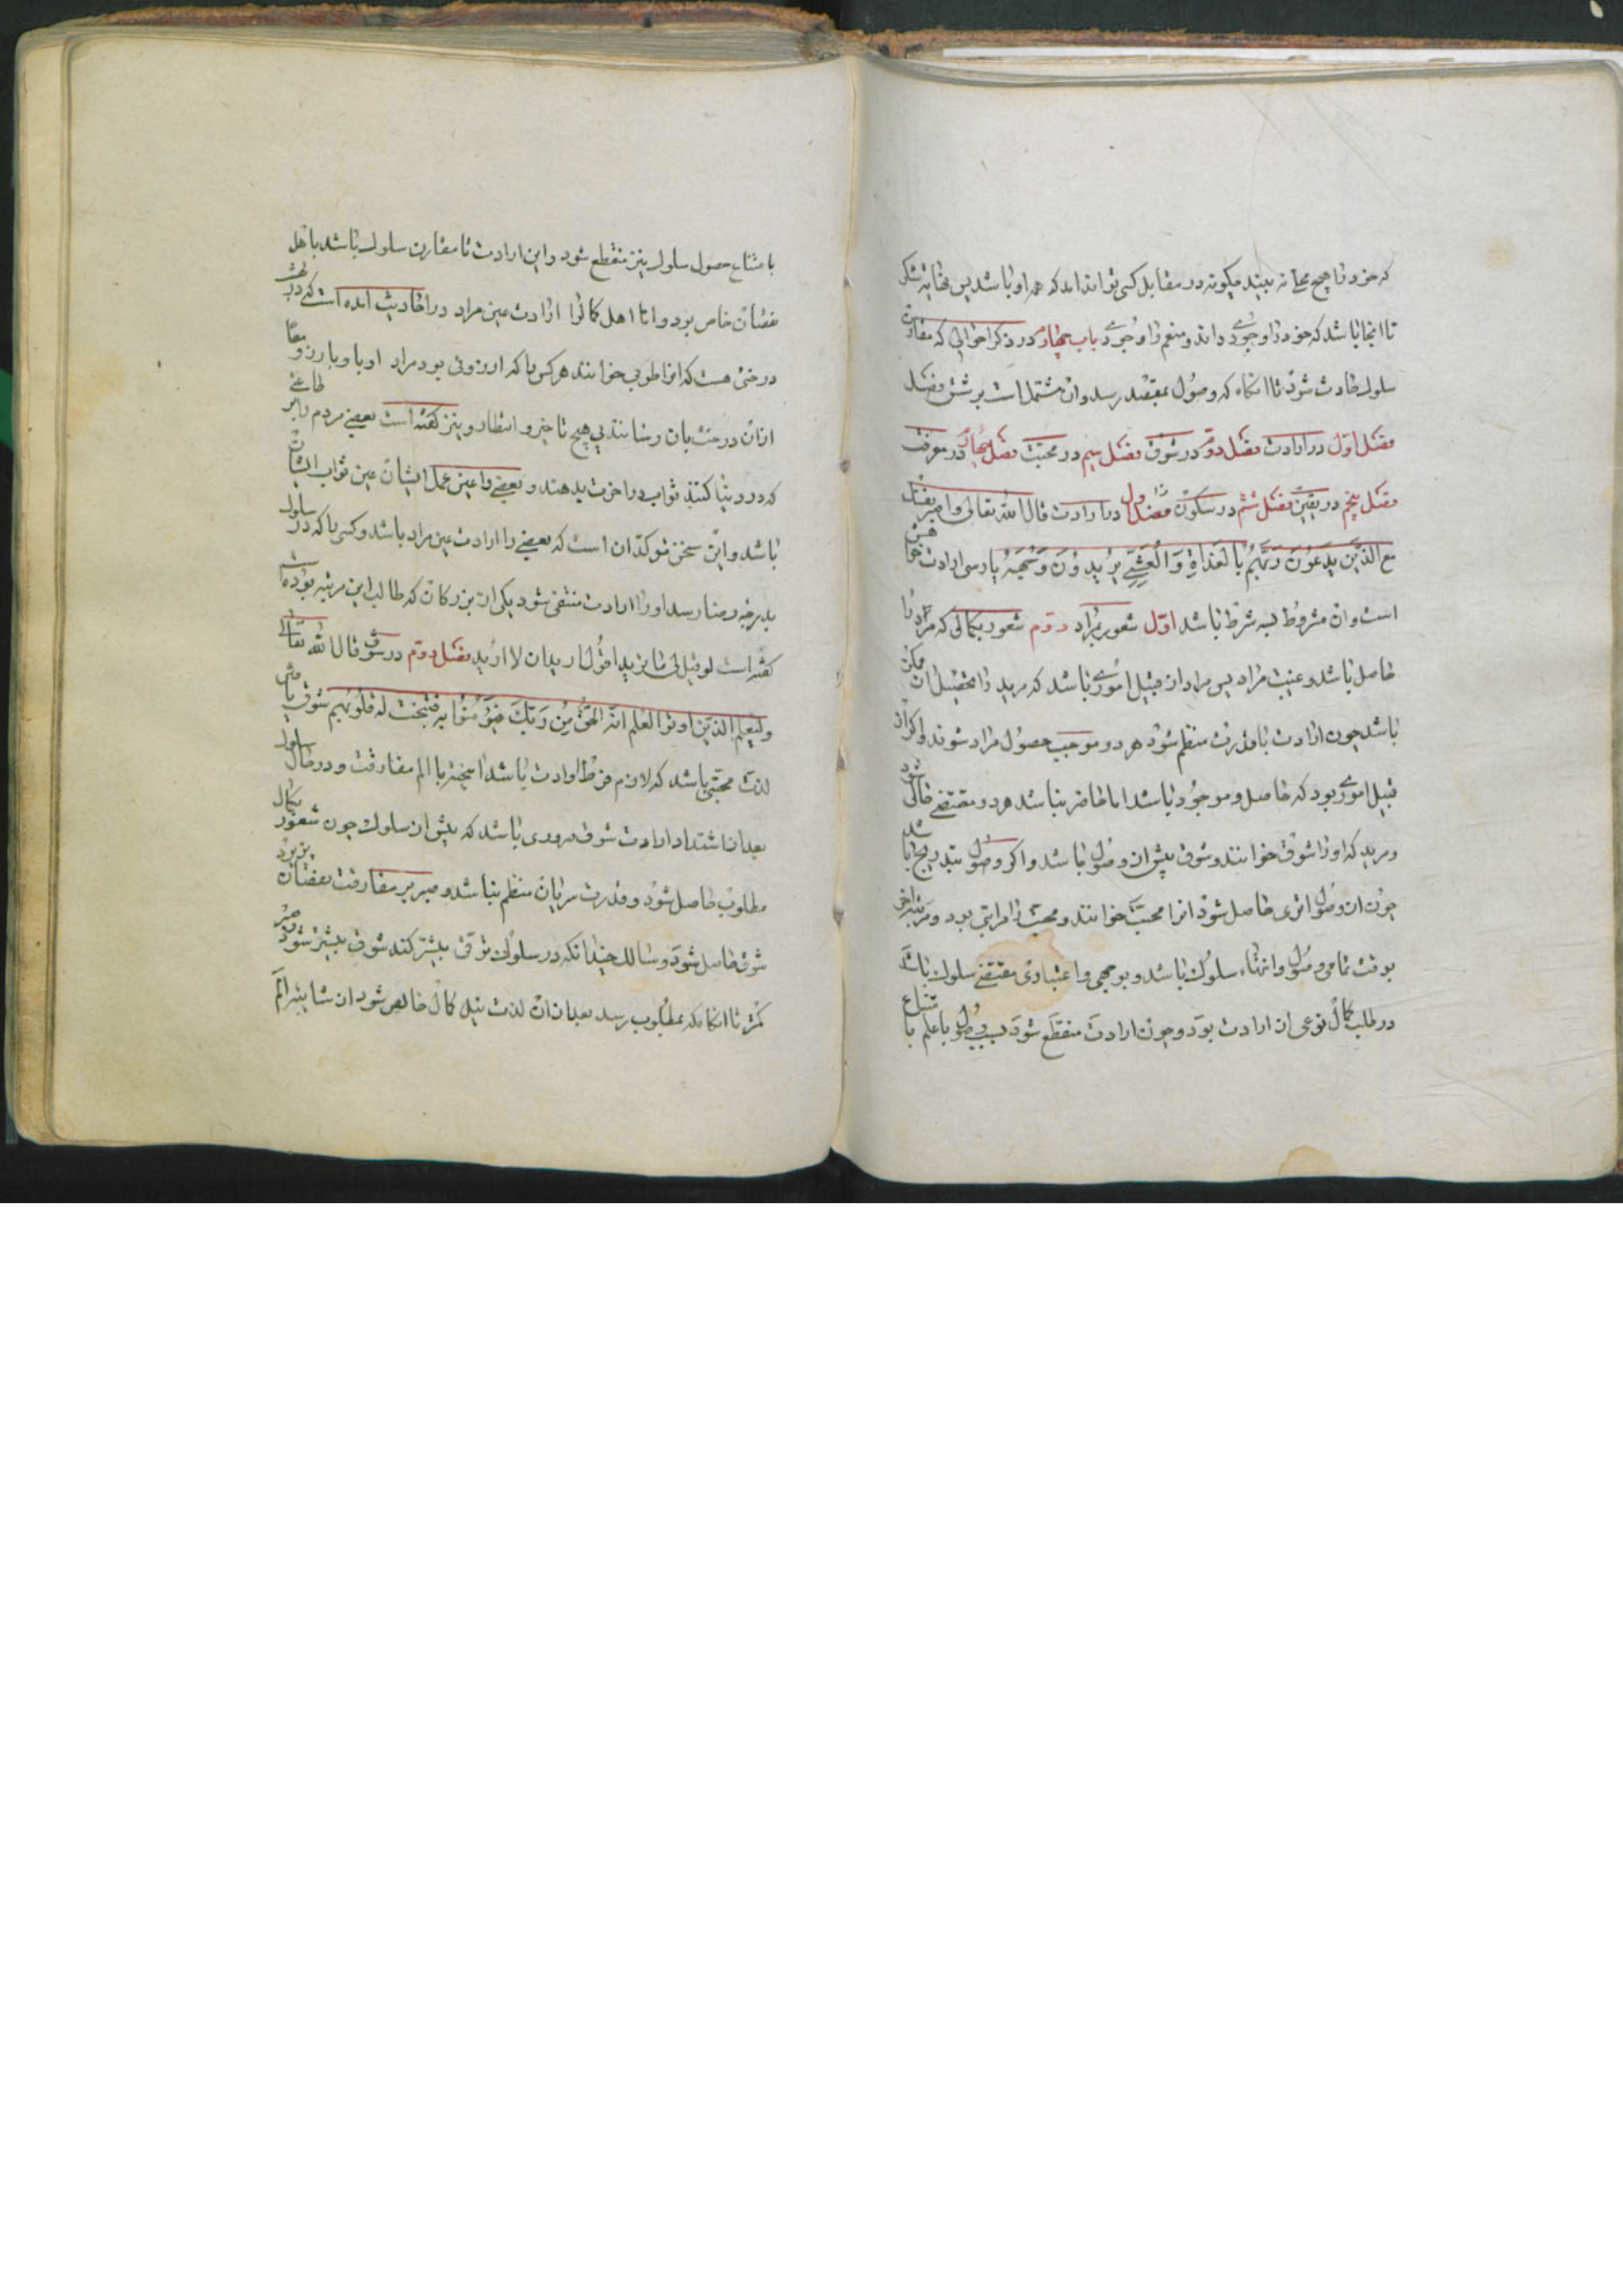 که خود را هیچ محلی نه بیند چگونه در مقابل کسی تواند امد که همه او باشد پس نهایة شکر
تا انجا باشد که خود را وجودی داند و منعم را وجودی باب چهارم در ذکر احوالی که مقارن
سلوک حادث شود تا انکاه که وصول بمقصد رسد وان مشتمل است بر شش فصل
فصل اول در ارادت فصل دوم در شوق فصل سیم در محبت فصل چهارم در معرفت
فصل پنجم در یقین فصل ششم در سکون فصل اول در ارادت قال الله تعالی واصبر نفسک
مع الذین یدعون ربهم بالغداة والعشی یریدون وجهه پارسی ارادت خواستن
است وان مشروط بسه شرط باشد اول شعور بمراد دوم شعور بکمالی که مراد را
حاصل باشد و غیبت مراد پس مراد از قبیل اموری باشد که مرید را تحصیل ان ممکن
باشد چون ارادت با قدرت منظم شود هر دو موجب حصول مراد شوند و اکر از
قبیل اموری بود که حاصل و موجود باشد اما حاضر نباشد هر دو مقتضی حالی شود
و مرید که اورا شوق خوانند و شوق پیش از وصول باشد و اکر وصول بتدریج باشد
چون از وصول اثری حاصل شود انرا محبت خوانند و محبت را مراتبی بود و مرتبه اخر
بوقت تمامی وصول و انتهاء سلوک باشد و بوجهی و اعتباری مقتضی سلوک باشد
در طلب کمال نوعی از ارادت بود و چون ارادت منقطع شود بسبب وصول یا علم با متناع
با متناع حصول سلوک نیز منقطع شود واین ارادت تا مقارن سلوک باشد باهل
نقصان خاص بود و اما اهل کمال را ارادت عین مراد در احادیث امده است که در بهشت
درختی هست که انرا طوبی خوانند هر کس را که ارزوئی بود مراد او با و بارزو معا
ازان درخت بان رسانند بی هیچ تاخیر و انتظار و نیز کفته است بعضی مردم را بر طاعتی
که در دنیا کنند ثواب در اخرت بدهند و بعضی را عین عمل ایشان عین ثواب ایشان
باشد و این سخن موکد ان است که بعضی را ارادت عین مراد باشد و کسی را که در سلوک
بدرجه رضا رسد اورا ارادت منتفی شود یکی از بزرکان که طالب این مرتبه بوده است
کفته است لو قیل لی ما ترید اقول ارید ان لا ارید فصل دوم در شوق قال الله تعالی
ولیعلم الذین اوتوا العلم انه الحق من ربک فیؤمنوا به فتخبت له قلوبهم شوق یافتن
لذت محبتی باشد که لازم فرط ارادت باشد امیخته با الم مفارقت و در حال سلوک
بعد از اشتداد ارادت شوق ضروری باشد که پیش از سلوک چون شعور بکمال
مطلوب حاصل شود و قدرت سر بان منظم نباشد و صبر بر مفارقت نقصان پذیرد
شوق حاصل شود و سالک چندانکه در سلوک ترقی بیشتر کند شوق بیشتر شود و صبر
کمتر تا انکاه که بمطلوب رسد بعد ازان لذت نیل کمال خالص شود از شایبه الم